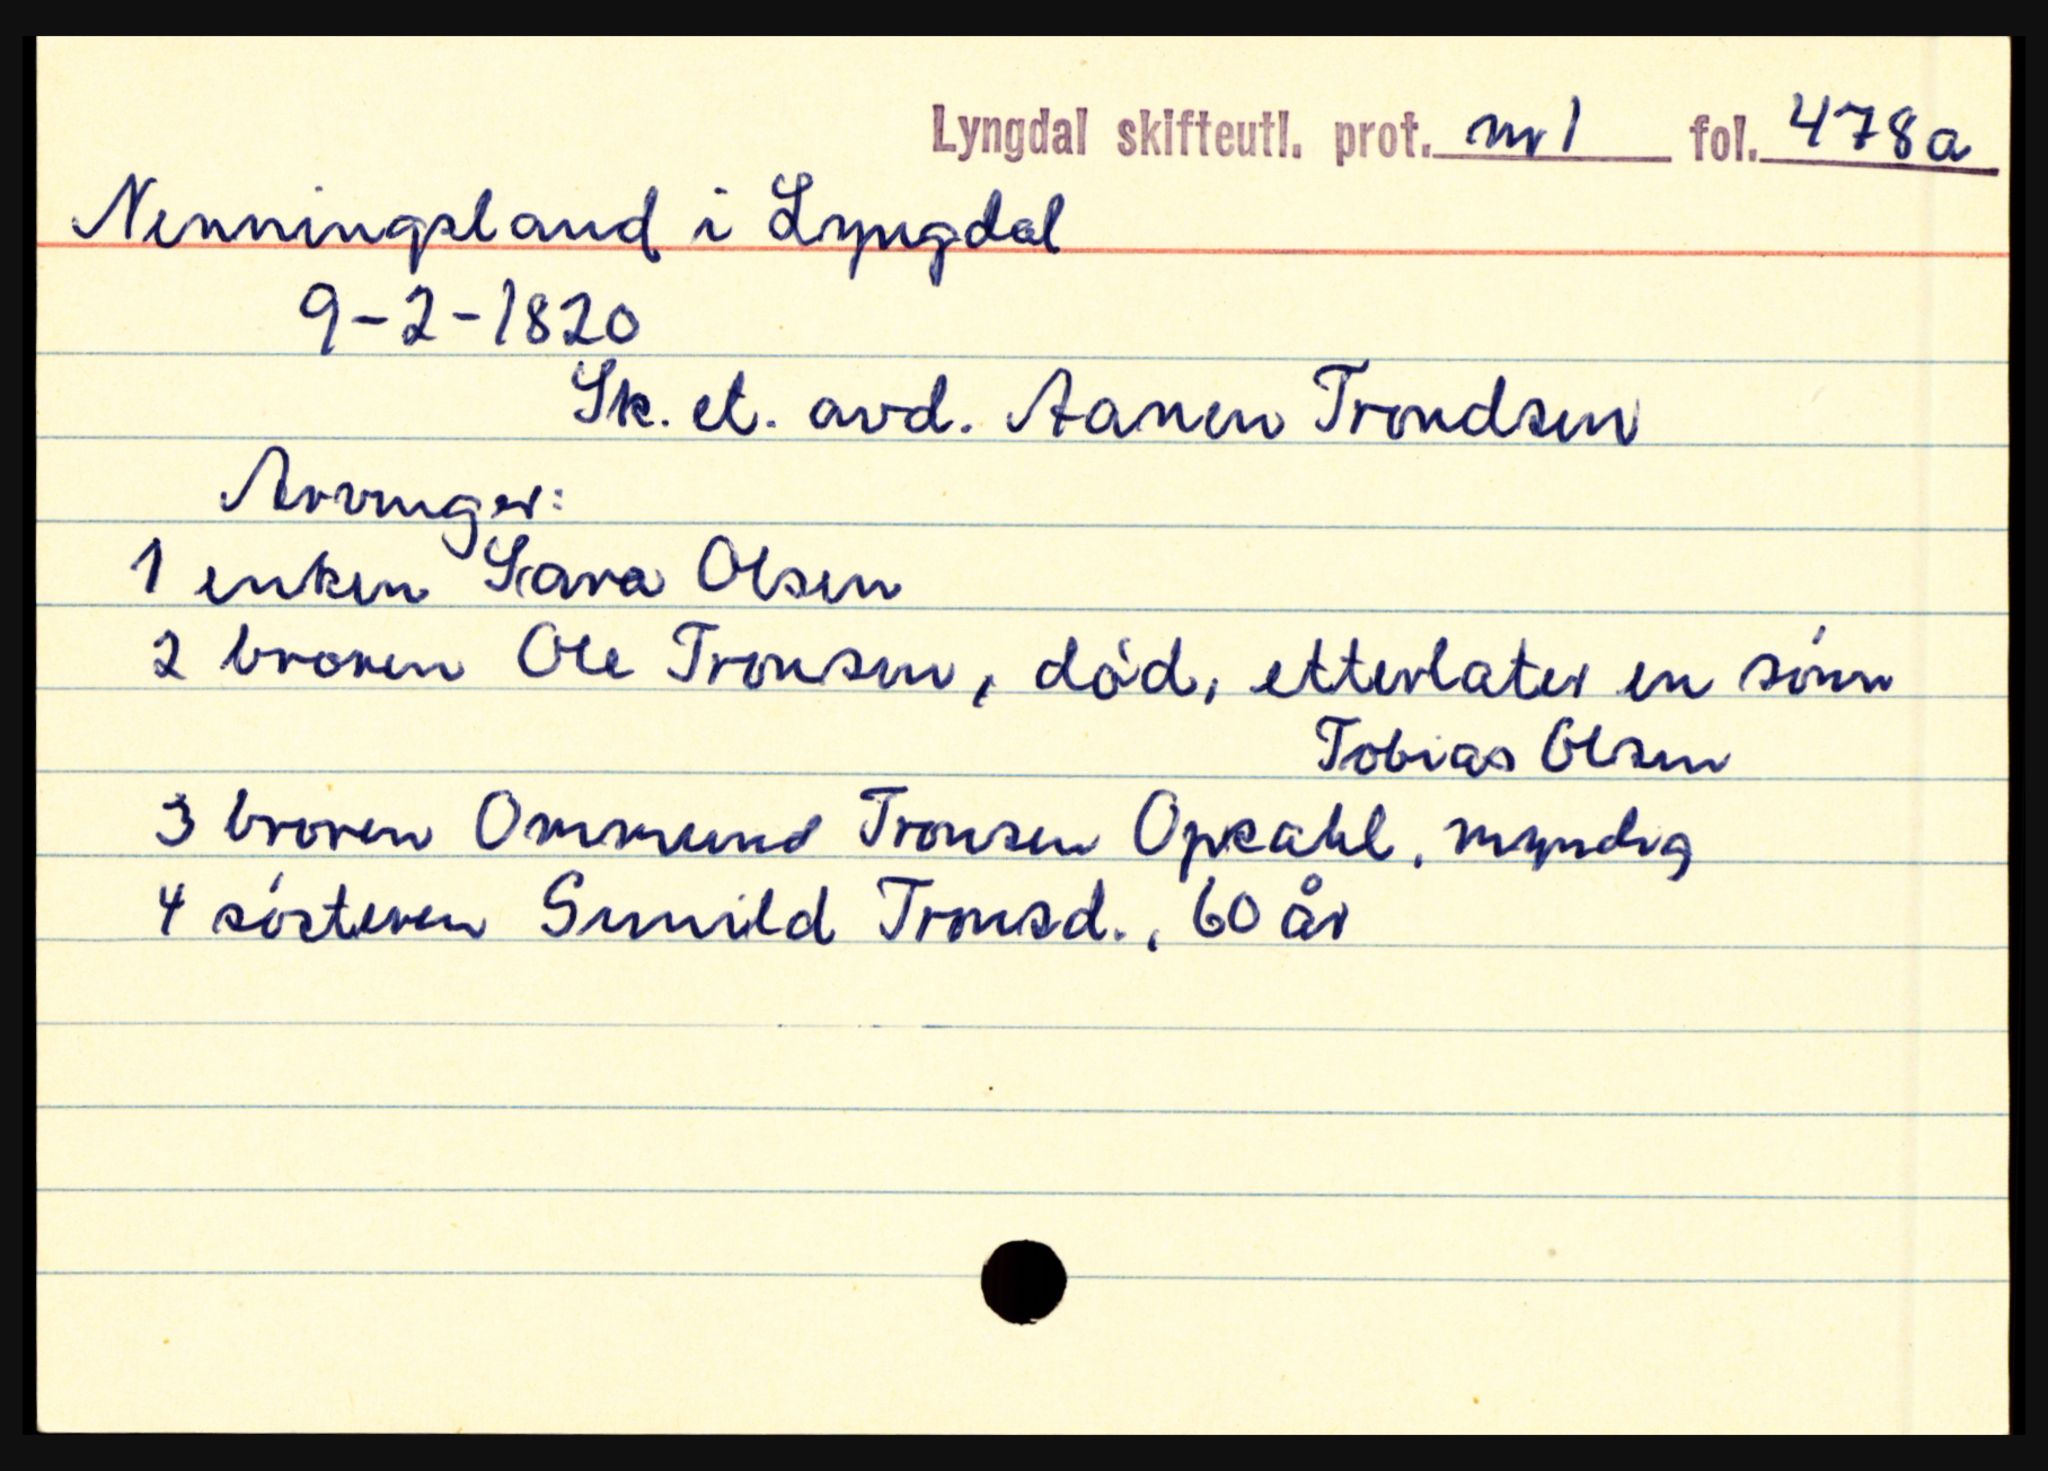 Lyngdal skifteutl. prot. nr 1 fol. 478a
Nenningsland i Lyngdal
9-2-1820
Sk. et. avd. Aanen Trondsen
Arvinger:
1 enken Sara Olsen
2 broren Ole Tronsen, død, etterlater en sønn
Tobias Olsen
3 broren Ommund Tronsen Opsahl, myndig
4 søsteren Gunild Tronsd., 60 år